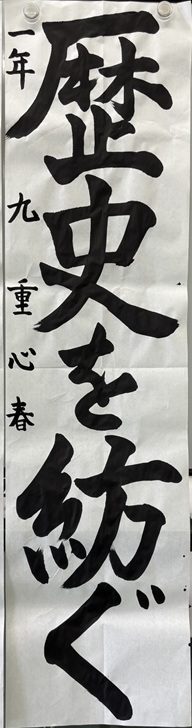 歴史を紡ぐ
一年 九重心春